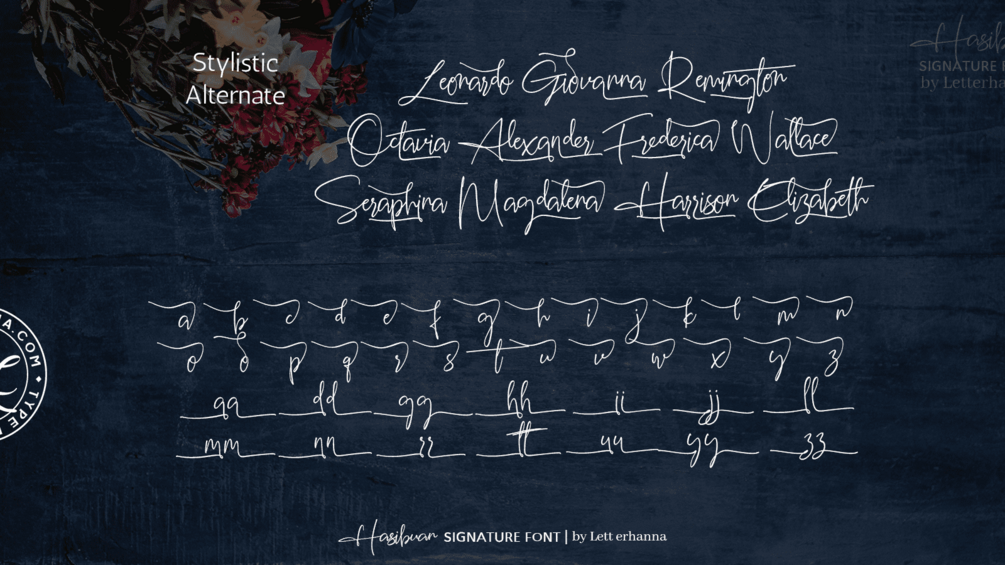 Stylistic
Alternate
Leonardo Giovanna Remington
Octavia Alexander Frederica Wallace
Seraphina Magdalena Harrison Elizabeth
Hasib
SIGNATURE F
by Letterha
a b c d e f g h i j k l m n
o o p q r s t u v w x y z
aa dd gg hh ii jj ll
mm nn rr tt uu yy zz
A.COM • TYPE
Hasibuan SIGNATURE FONT | by Lett erhanna